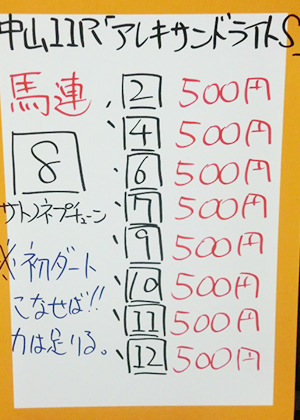 中山11R「アレキサンドライトS」
馬連
8
サトノネプチューン
※初ダート
こなせば!!
力は足りる。
2 500円
4 500円
6 500円
7 500円
9 500円
10 500円
11 500円
12 500円